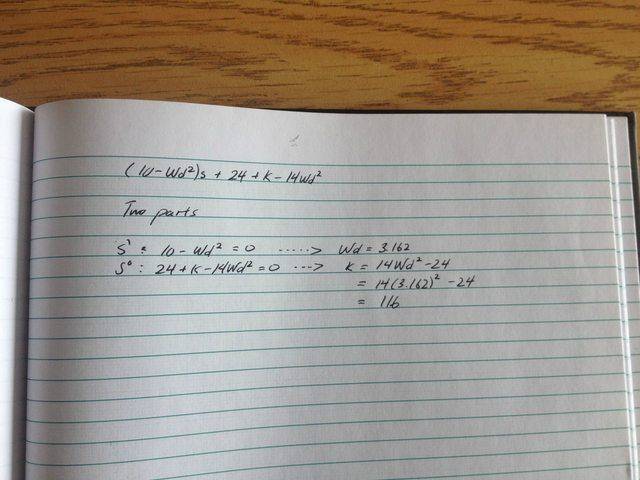 (10-Wd²)s + 24 + K - 14Wd²
Two parts
S¹ : 10 - Wd² = 0 .....> Wd = 3.162
S⁰ : 24 + K - 14Wd² = 0 ...> K = 14Wd² - 24
= 14(3.162)² - 24
= 116